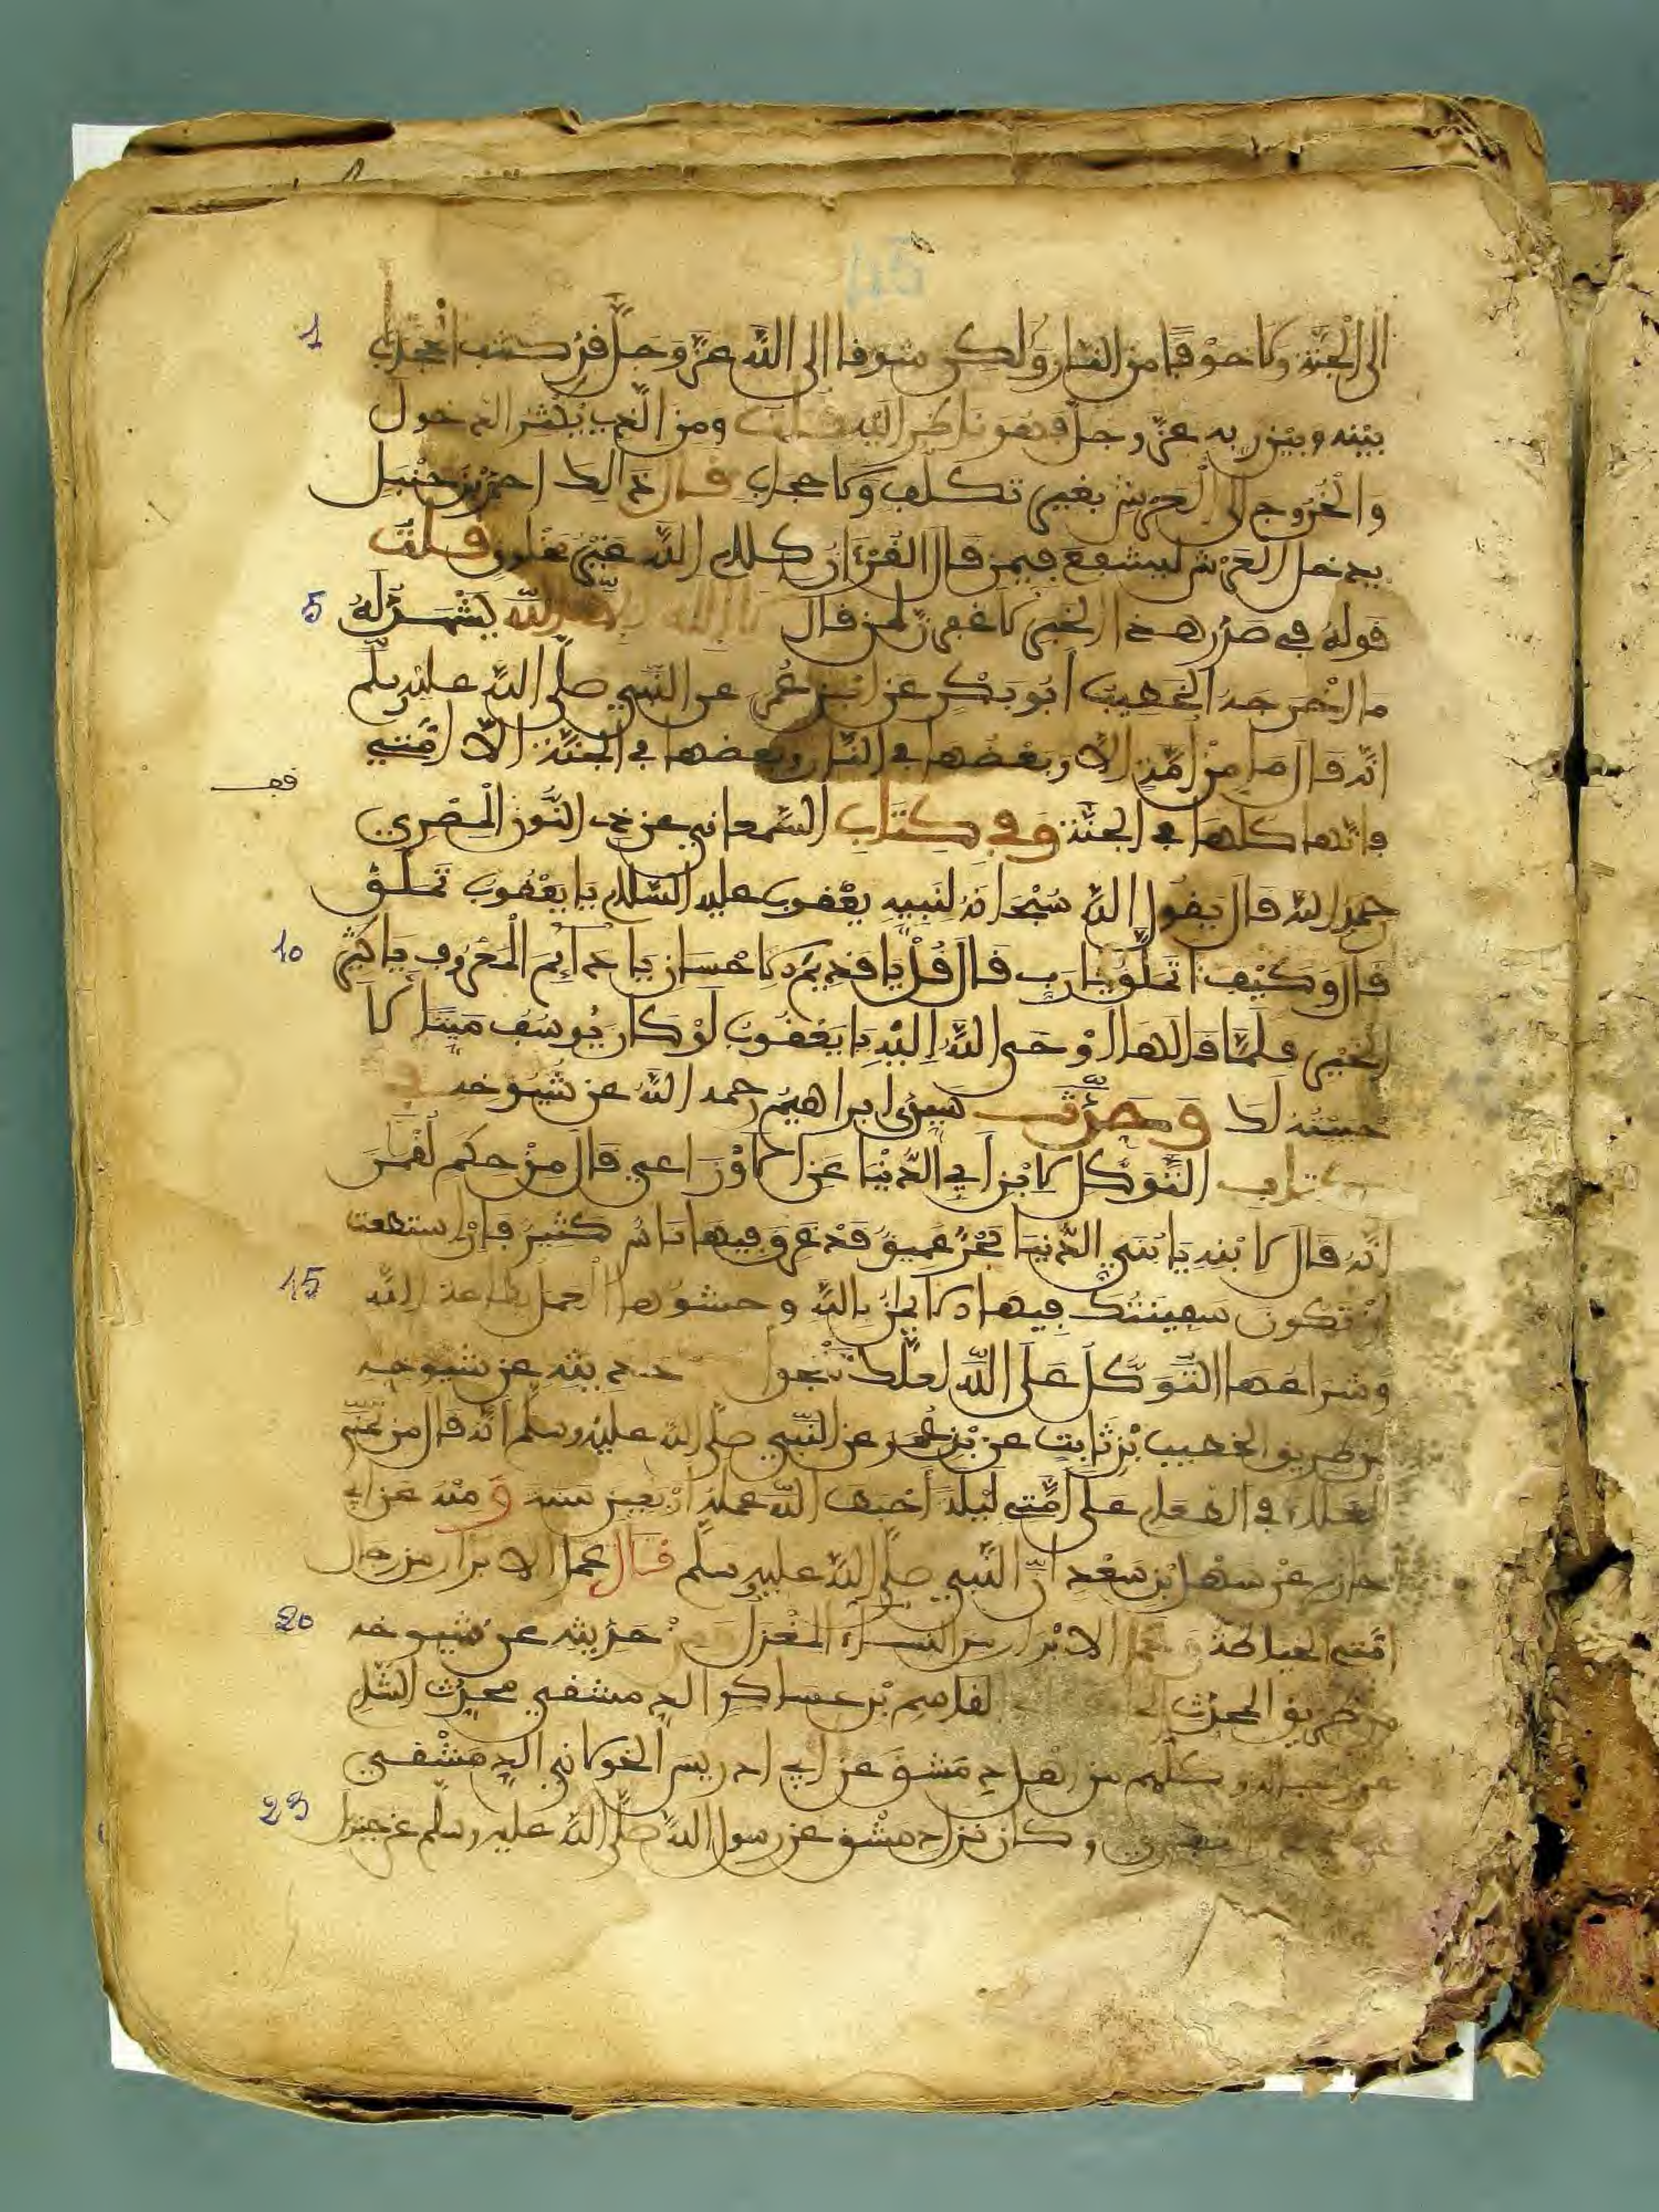 45
1 إلى الجنة ولا خوفا من النار ولكن شوقا إلى الله عز وجل قد كشف الحجاب
بينه وبين ربه عز وجل فهو ناظر إليه قلت ومن الذي يكثر الدخول
والخروج إلى العرش بغير تكلف ولا حجاب قال ذلك احمد بن حنبل
يدخل العرش ليشفع فيمن قال القرءان كلام الله غير مخلوق قلت
5 قوله في صدر هذا الخبر لمن قال الله يشهد له
ما اخرجه الخطيب أبو بكر عن ابن عمر عن النبي صلى الله عليه وسلم
انه قال ما من أمة إلا وبعضها في النار وبعضها في الجنة إلا أمتي
فإنها كلها في الجنة وفي كتاب السمعاني عن ذي النون المصري
رحمه الله قال يقول الله سبحانه لنبيه يعقوب عليه السلام يا يعقوب تملق
10 قال وكيف اتملق يا رب قال قل يا قديم الاحسان يا دائم المعروف يا كثير
الخير فلما قالها أوحى الله إليه يا يعقوب لو كان يوسف ميتا لا
حييته لك وحدث سيدي ابراهيم رحمه الله عن شيوخه في
كتاب التوكل لابن أبي الدنيا عن الاوزاعي قال من حكم لقمن
انه قال لابنه يا بني الدنيا بحر عميق قد غرق فيها ناس كثير فإن استطعت
15 أن تكون سفينتك فيها الايمان بالله وحشوها العمل بطاعة الله
وشراعها التوكل على الله لعلك تنجوا حديثه عن شيوخه
من طريق الخطيب بن ثابت عن بن عمر عن النبي صلى الله عليه وسلم أنه قال من تمنى
الغلاء في الطعام على أمتي ليلة أحبط الله عمله أربعين سنة ومنه عن أبي
حازم عن سهل بن سعد أن النبي صلى الله عليه وسلم قال عمل الابرار من رجال
20 أمتي الخياطة وعمل الابرار من النساء المغزل حديثه عن شيوخه
من طريق المحدث القاسم بن عساكر الدمشقي محدث الشام
وكلهم من اهل دمشق عن أبي ادريس الخولاني الدمشقي
23 وكان نزل دمشق عن رسول الله صلى الله عليه وسلم عن جبريل